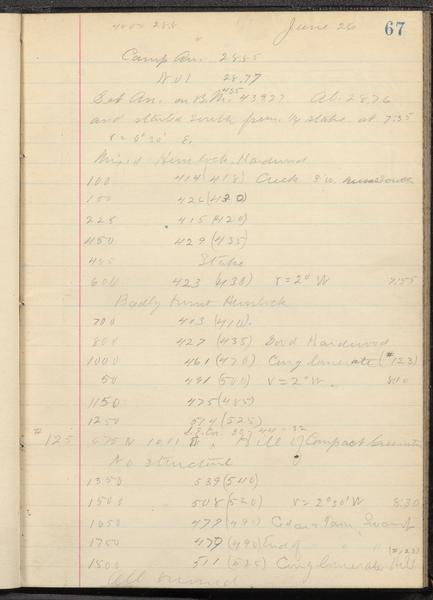 June 26 67
Camp An. 28.85
No 1 28.77
Set An. on B.M. 435 43927 At. 28.76
and started South from 1/4 stake at 7:35
V = 0°30' E.
Mixed Hemlock Hardwood
100 414 (418) Creek 3' w.
150 426 (430)
225 415 (420)
450 429 (435)
485 Stake
600 423 (430) V = 2° W 7:55
Badly burnt Hemlock
700 403 (410)
800 427 (435) Good Hardwood
1000 461 (470) Conglomerate (#123)
50 491 (500) V = 2° W. 8:10
1150 475 (485)
1250 514 (525)
S.E. Cor. 32 - 44 - 32
#125 675 N 1011 W, Hill of Compact
No structure
1350 539 (540)
1500 508 (520) V = 2°30' W 8:30
1650 479 (490) Cedar & Tam. Swamp
1750 479 (490) End of " "
1800 511 (525) Conglomerate Hill
All burned.